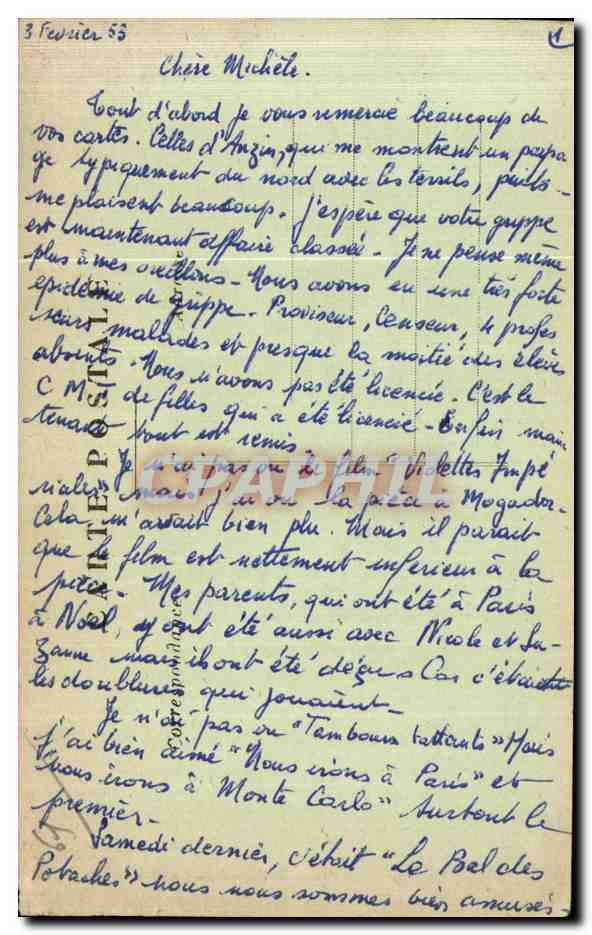 3 Fevrier 53
1
Chère Michèle.
Tout d'abord je vous remercie beaucoup de
vos cartes. Celles d'Anzin, qui me montrent un paysa
ge typiquement du nord avec les terrils, puits -
me plaisent beaucoup. J'espère que votre grippe
est maintenant affaire classée - Je ne pense même
plus à mes oreillons - Nous avons eu une très forte
epidémie de grippe. Proviseur, Censeur, 4 profs
malades et presque la moitié des élèves
absents. Nous n'avons pas été licencié. C'est le
C M de filles qui a été licencié - Enfin main
tenant tout est remis.
Je n'ai pas vu le film "Violettes Impé
riales" mais j'ai vu la pièce à Mogador.
Cela m'avait bien plu. Mais il parait
que le film est nettement inferieur à la
pièce. Mes parents, qui ont été à Paris
à Noël, y ont été aussi avec Nicole et Su-
zanne mais ils ont été déçus Car c'étaient
les doublures qui jouaient -
Je n'ai pas vu "Tambours battants" Mais
j'ai bien aimé "Nous irons à Paris" et
"Nous irons à Monte Carlo" surtout le
premier -
Samedi dernier, c'était "Le Bal des
Potaches" nous nous sommes bien amusés -
CARTE POSTALE
Correspondance
Adresse
CPAPHIL
69